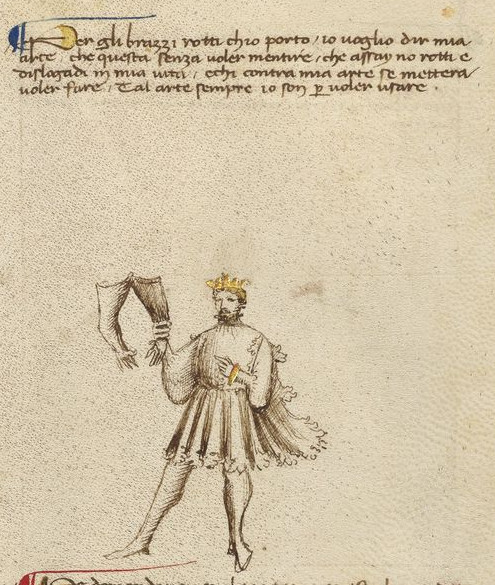 Per gli brazzi rotti ch'io porto / io voglio dir mia
arte / che questa senza voler mentire / che assay no rotti e
dislogadi in mia vita / e chi contra mia arte se mettera
voler fare / Tal arte sempre io son p voler usare .